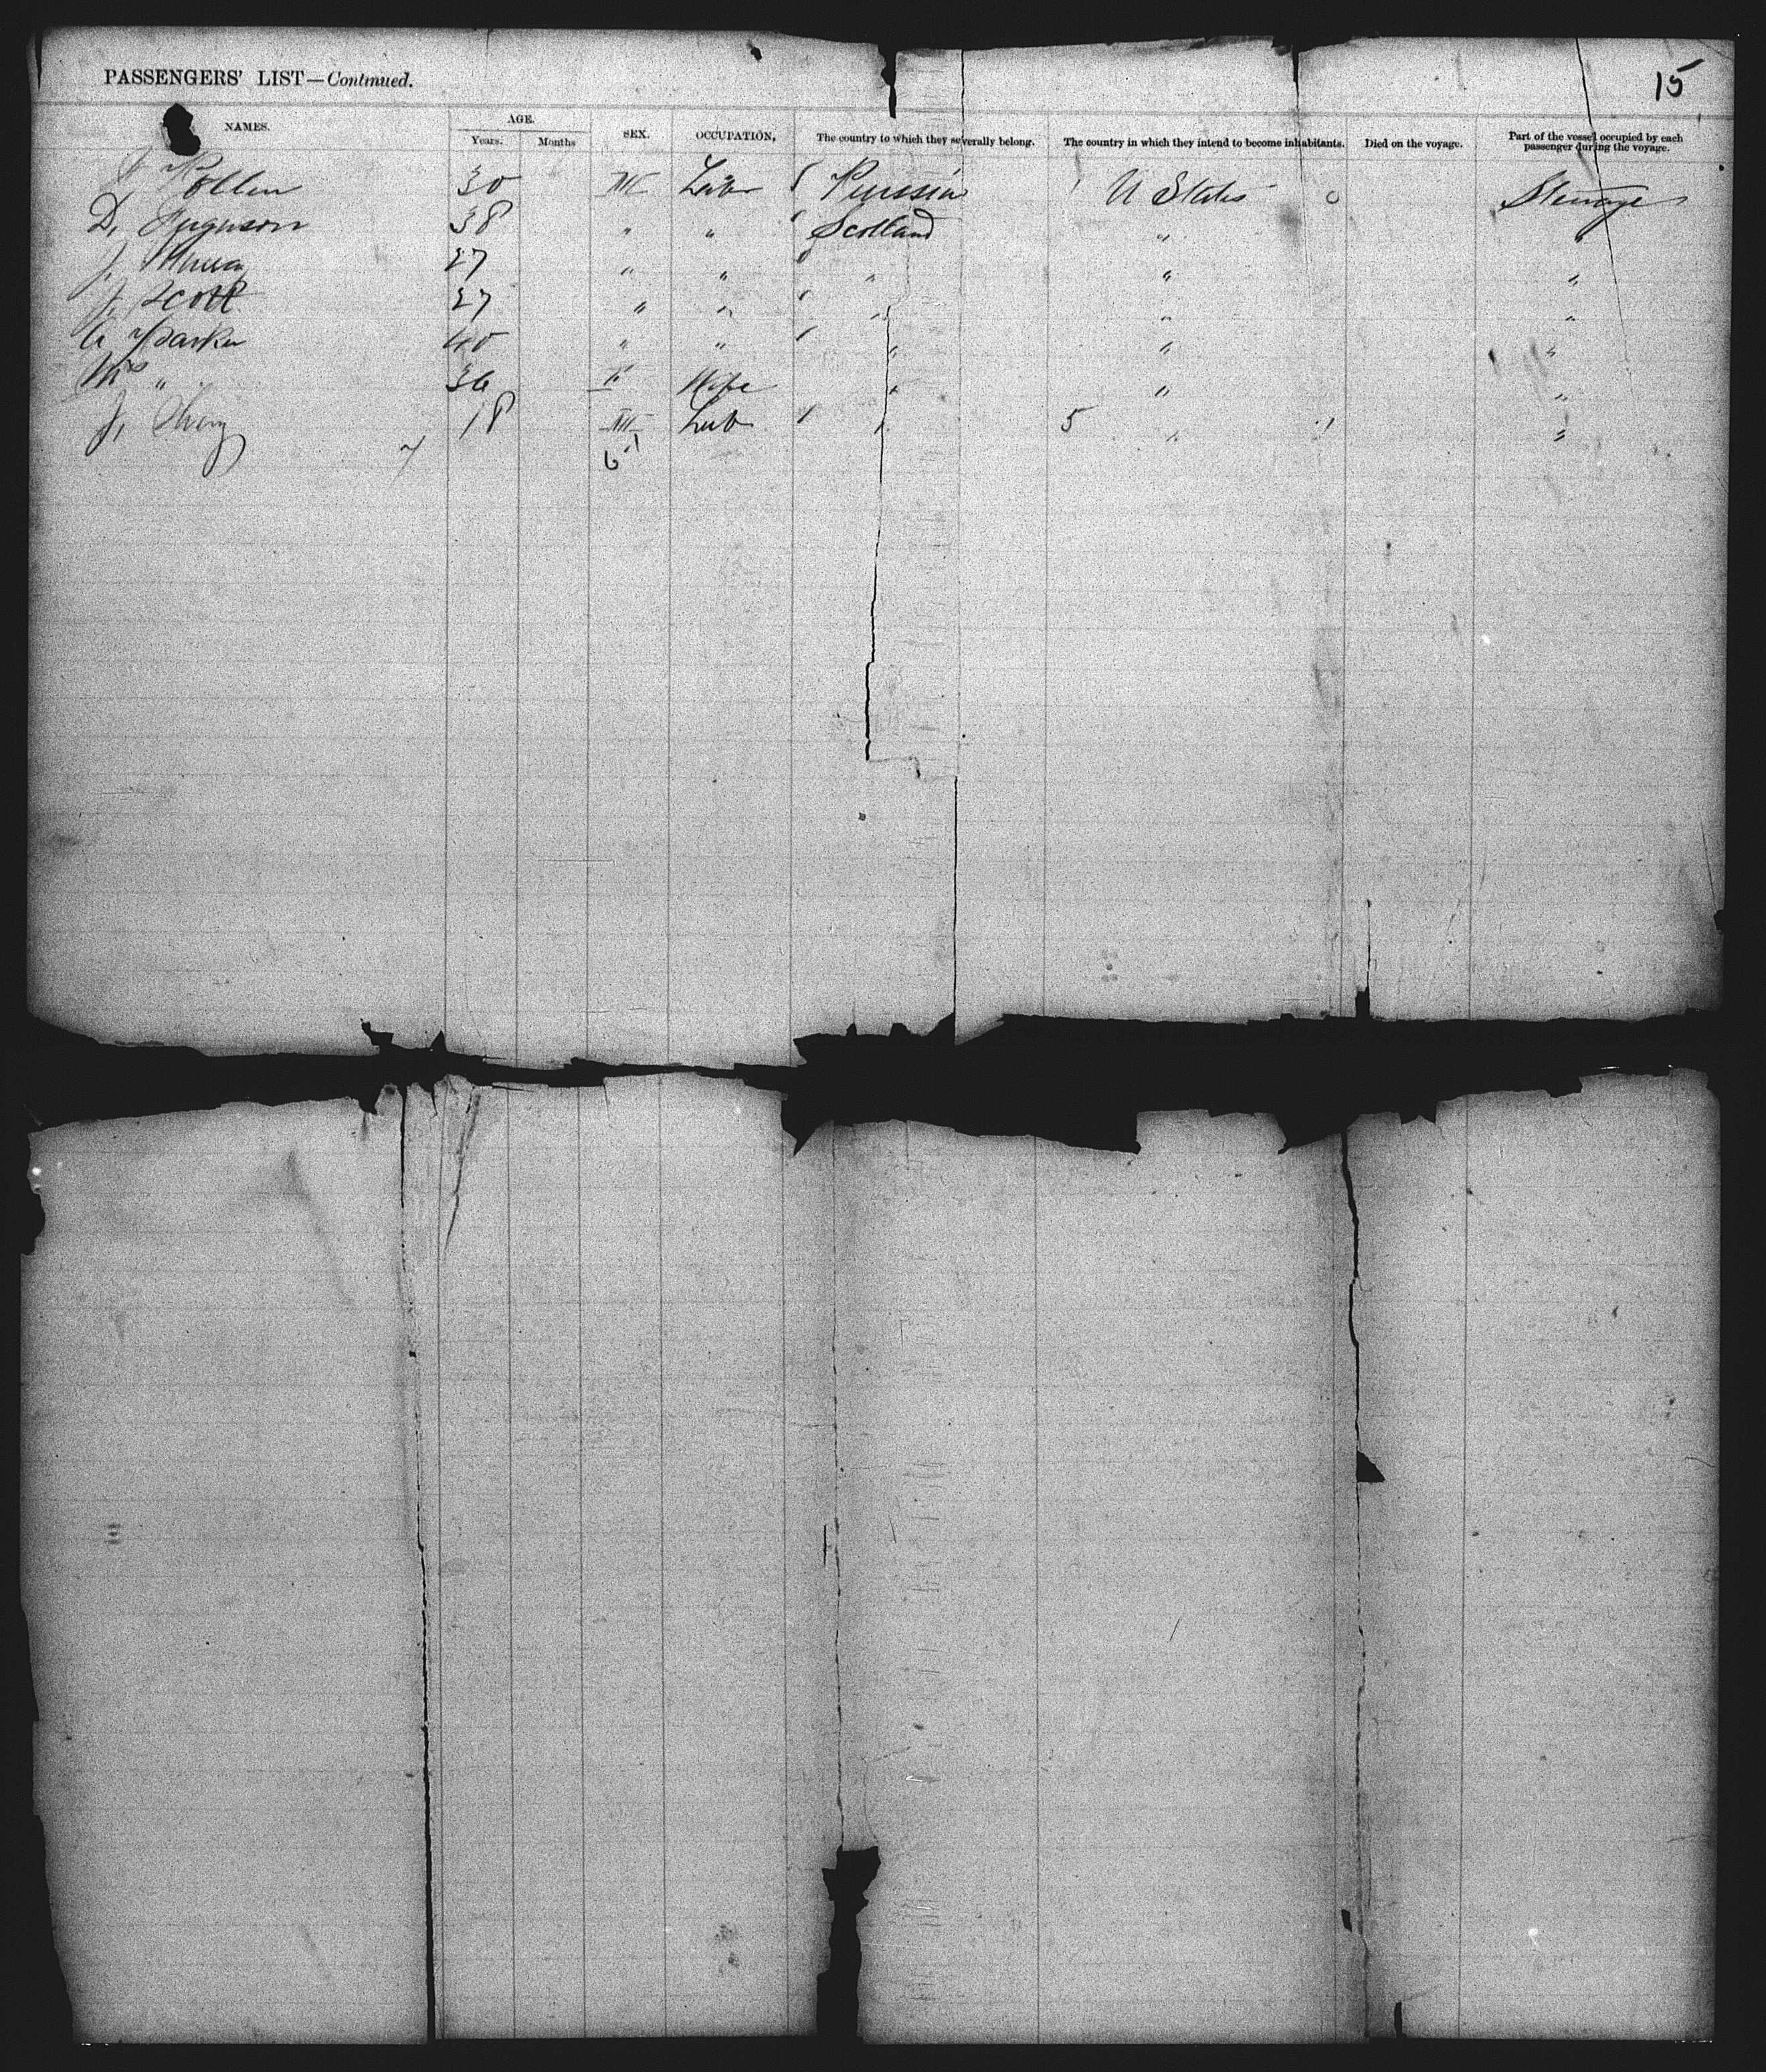 PASSENGERS' LIST—Continued.
15
NAMES. AGE. SEX. OCCUPATION, The country to which they severally belong. The country in which they intend to become inhabitants. Died on the voyage. Part of the vessel occupied by each passenger during the voyage.
Years. Months
30 M Labr Russia U States 0 Steerage
D, Ferguson 38 " " Scotland " "
J, 27 " " " " "
J, Scott 27 " " " " "
Parker 40 " " " " "
Mrs " 36 F Wife " " "
J, 18 M Lab " 5 " "
7 6 1